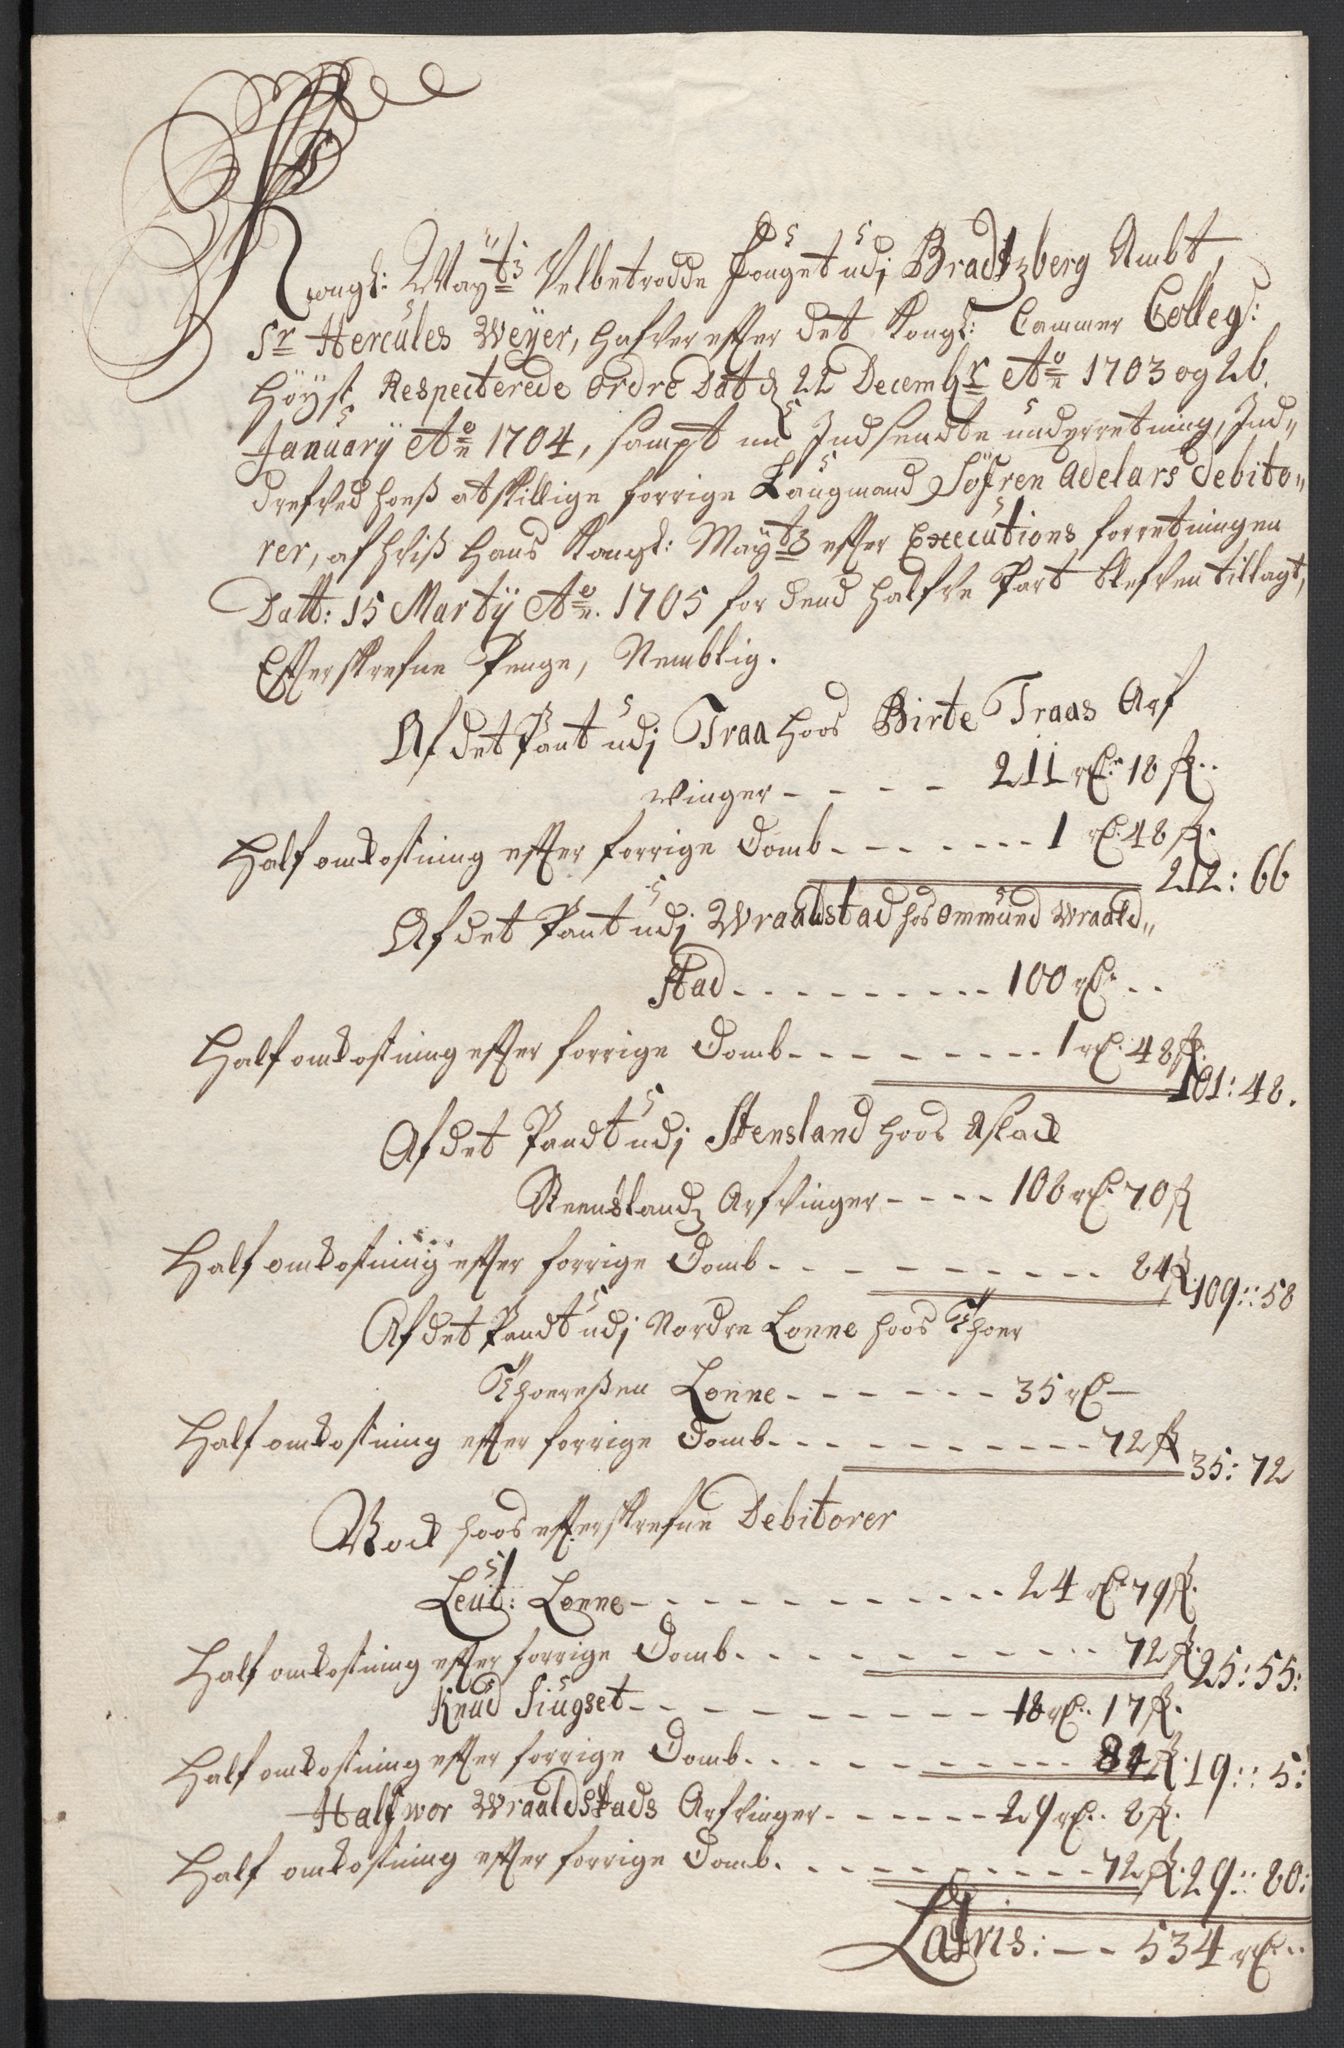 Kongl: Mayts Velbetrodde Fouget udj Bradtzberg Ambt,
Sr Hercules Weyer, hafver efter det Kongl: Cammer Colleg:
Høyst Respecterede Ordre Dat d 22 Decembr Ao 1703 og 26.
January Ao 1704, sampt nu Indsendte underretning, Ind-
drefved hoeß atskillige forrige Laugmand Søfren Adelars Debito-
rer, af hviß Hans Kongl: Mayts efter Executions forretningen
Datt: 15 Marty Ao. 1705 for dend halfve Part blefven tillagt,
Efterskrefne Penge, Nemblig.
Af det Pant udj Traa hoos Birte Traas Arf
vinger - - - - 211 rd. 18 s.
Half omkostning efter forrige Domb - - - - 1 rd. 48 s. 212: 66
Af det Pant udj Wraalstad hos Ommund Wraald-
stad - - - - 100 rd. - -
Half omkostning efter forrige Domb - - - - 1 rd. 48 s. 101: 48.
Af det Pandt udj Stensland hoos Aslack
Steenslandz Arfvinger - - - - 108 rd. 70 s
Half omkostning efter forrige Domb - - - - 84 s. 109: 58
Af det Pandt udj Nordre Lonne hoos Thoer
Thoereßen Lonne - - - - 35 rd -
Half omkostning efter forrige Domb - - - - 72 s 35: 72
Nock hoos efterskrefne Debitorer
Leut: Lonne - - - - 24 rd. 79 s.
Half omkostning efter forrige Domb - - - - 72 s. 25: 55:
Knud Siugset - - - - 18 rd. 17 s.
Half omkostning efter forrige Domb - - - - 84 s. 19: 5:
Halfwor Wraaldstads Arfvinger - - - - 29 rd. 8 s.
Half omkostning efter forrige Domb - - - - 72 s. 29: 80:
Latris: - - 534 rd. - -